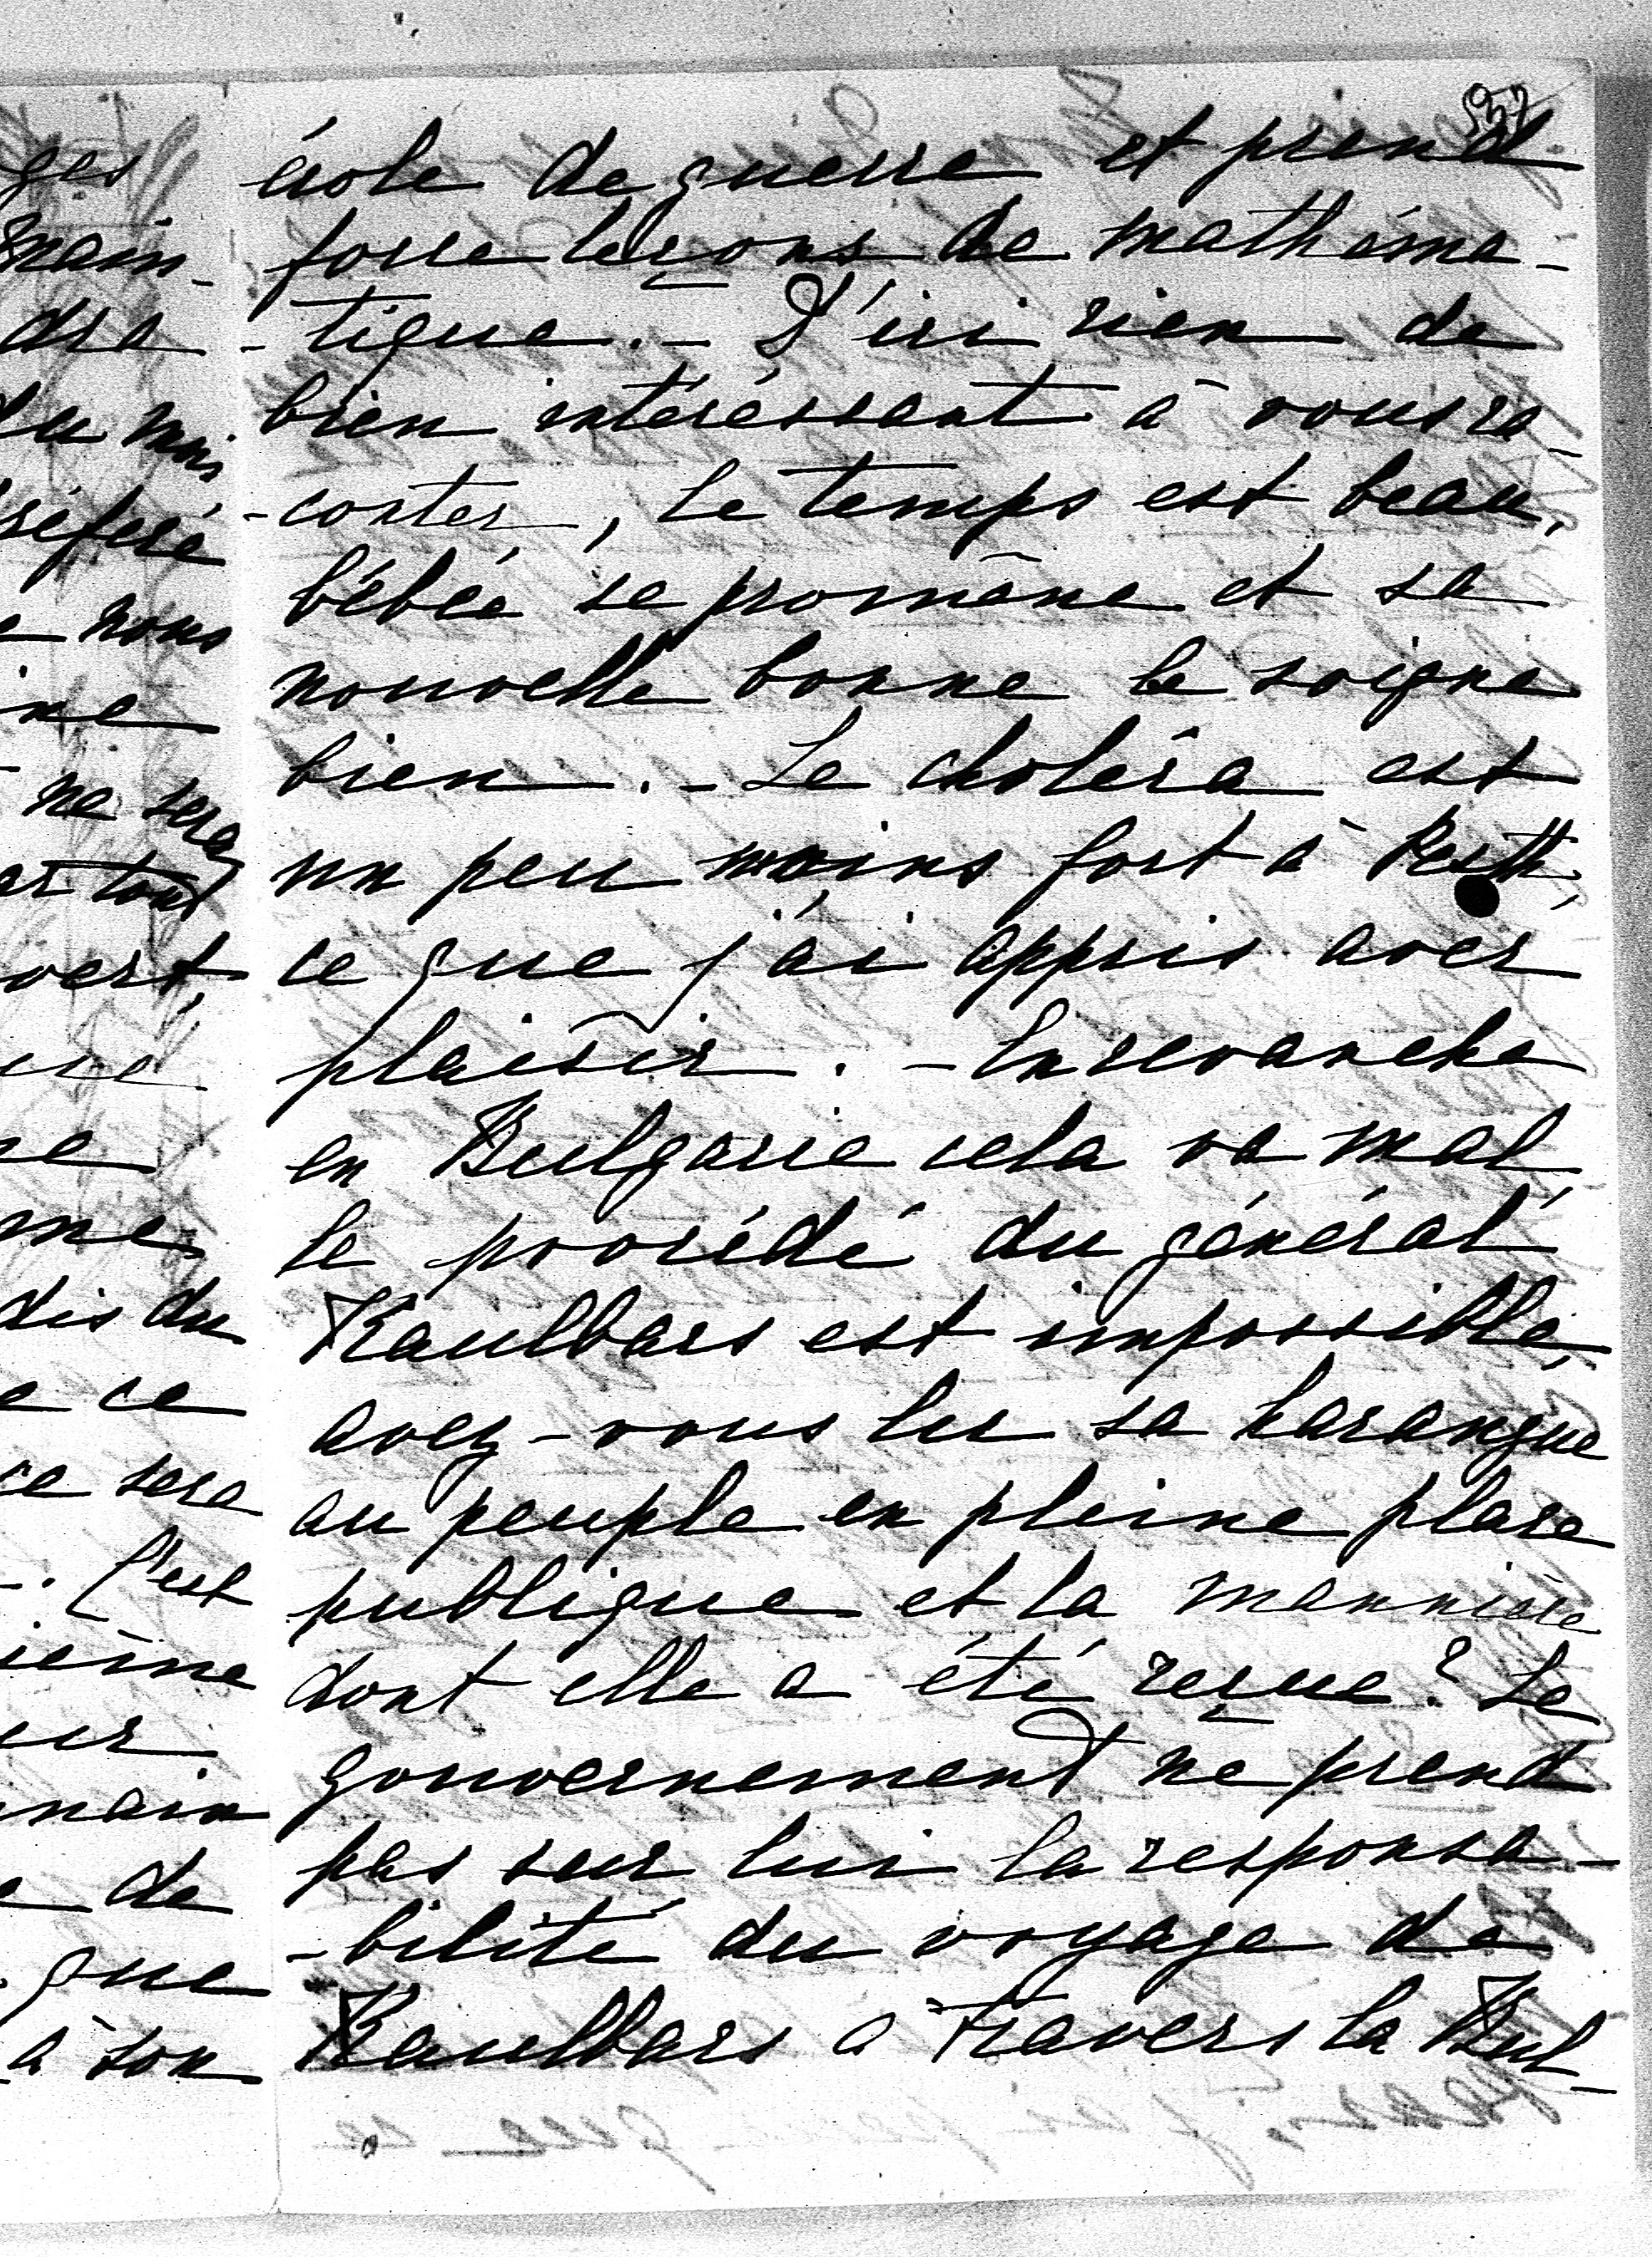 937
école de guerre et prend
force leçons de mathéma-
-tique. - D'ici rien de
bien intéressant à vous ra-
-conter, le temps est beau,
bébée se promène et sa
nouvelle bonne le soigne
bien. - Le choléra est
un peu moins fort à Pesth,
ce que j'ai appris avec
plaisir. - En revanche
en Bulgarie cela va mal,
le procédé du général
Kaulbars est impossible,
avez-vous lu sa harangue
au peuple en pleine place
publique et la mannière
dont elle a été reçue? Le
gouvernement ne prend
pas sur lui la responsa-
-bilité du voyage de
Kaulbars à travers la Bul-
ges
main-
dra
du mois
préféré
nous
ine
ne sera
tout
vert,
ne
me
dis du
ce
ce sera
-. C'est
ième
ur
main
de
que
à son